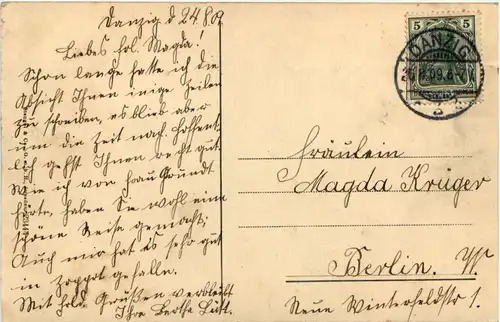 Danzig d 24.8.09
Liebes frl. Magda!
Schon lange hatte ich die
Absicht Ihnen einige Zeilen
zu schreiben, es blieb aber
nur die Zeit nach. Hoffent-
lich gehst Ihnen recht gut
Wie ich von frau Grundt
hörte, haben Sie wohl eine
schöne Reise gemacht;
Auch mir hat es sehr gut
in Zoppot gefallen.
Mit hzl. Grüßen verbleibt
Ihre Lütt.
5 5
DANZIG
Fräulein
Magda Krüger
Berlin. W.
Neue Winterfeldstr 1.